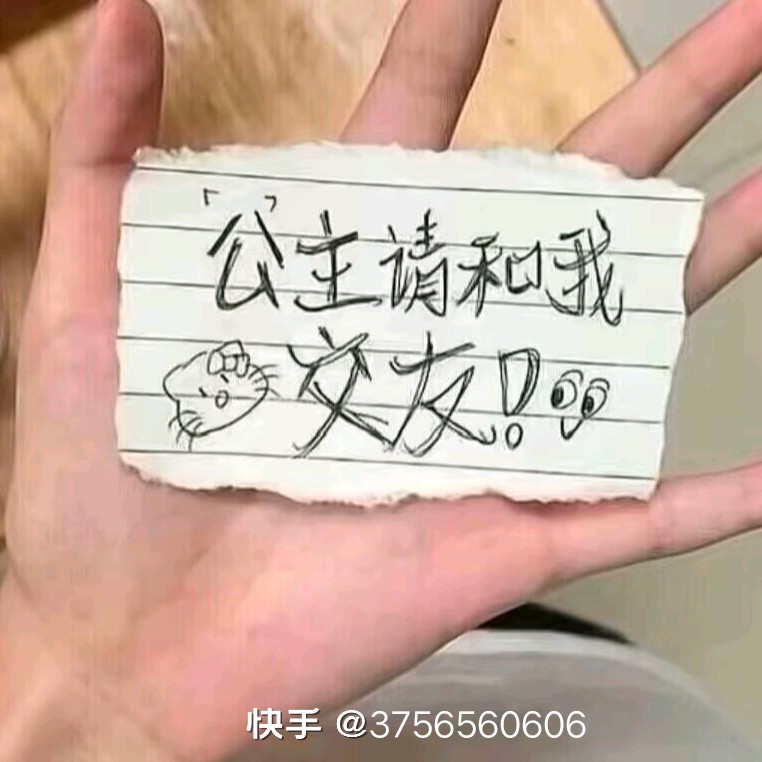 「公」主请和我
交友!
快手 @3756560606